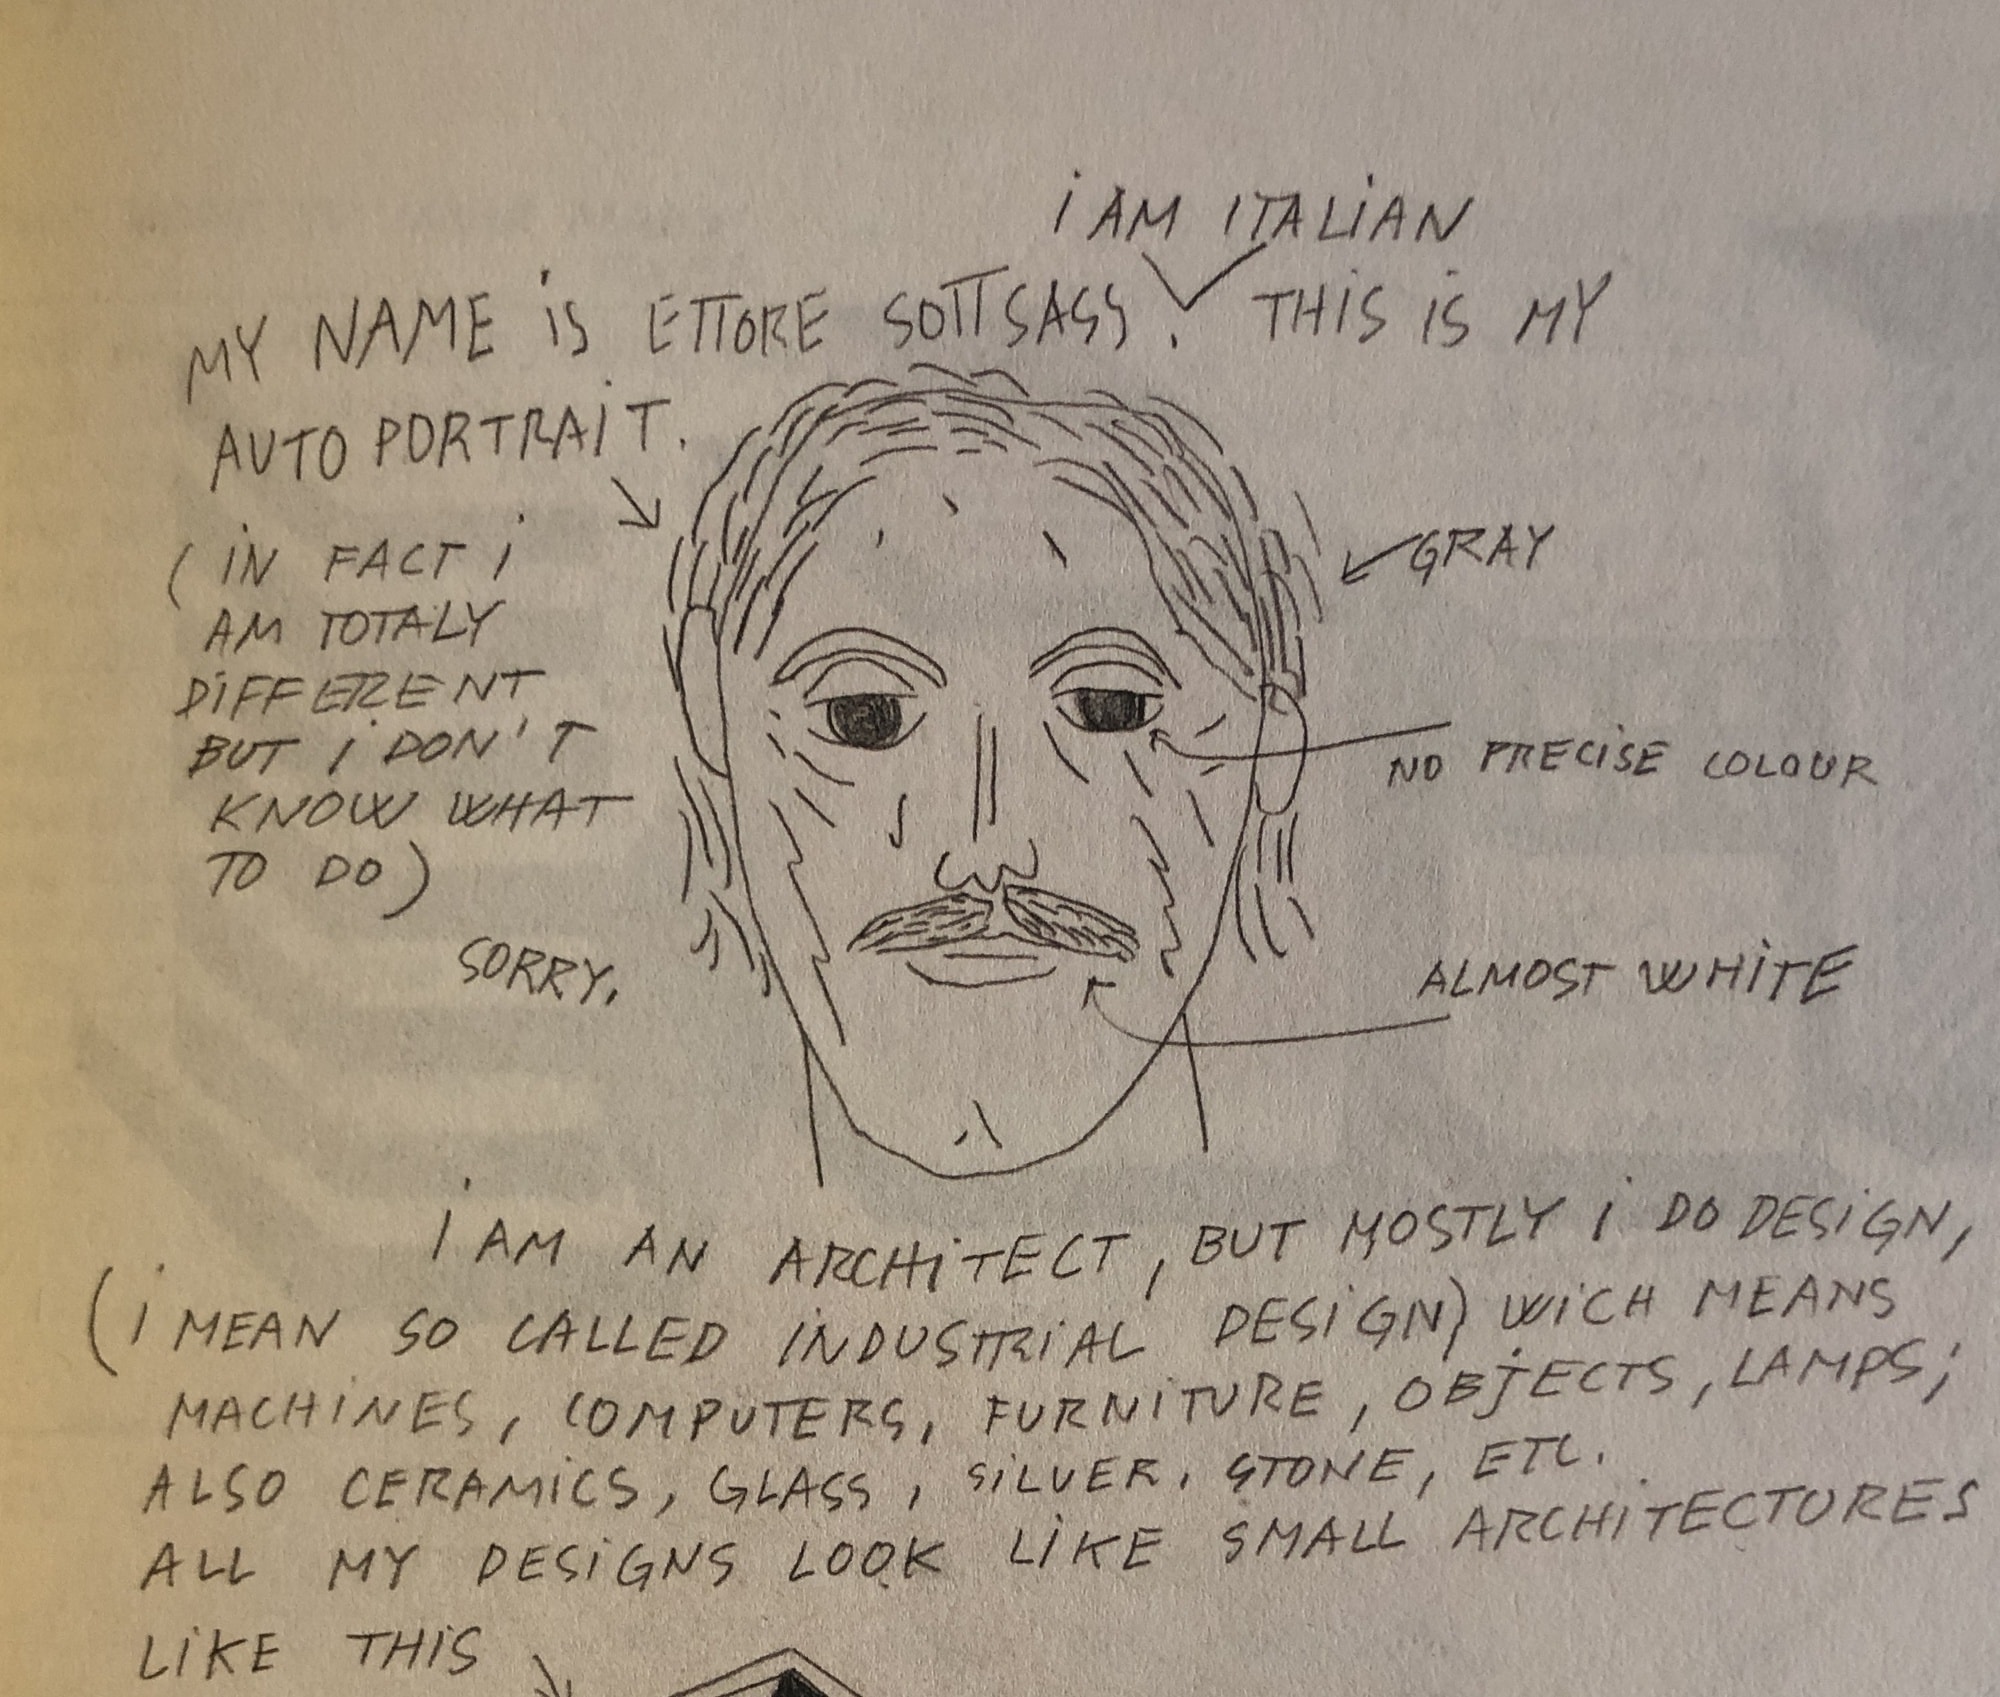 i AM ITALiAN
MY NAME iS ETTORE SOTTSASS. THiS iS MY
AUTO PORTRAiT.
(iN FACT i
AM TOTALY
DiFFERENT
BUT i DON'T
KNOW WHAT
TO DO)
SORRY.
GRAY
NO PRECiSE COLOUR
ALMOST WHiTE
i AM AN ARCHiTECT, BUT MOSTLY i DO DESiGN,
(i MEAN SO CALLED iNDUSTRiAL DESiGN) WICH MEANS
MACHiNES, COMPUTERS, FURNiTURE, OBjECTS, LAMPS;
ALSO CERAMiCS, GLASS, SiLVER, STONE, ETC.
ALL MY DESiGNS LOOK LiKE SMALL ARCHiTECTURES
LiKE THiS